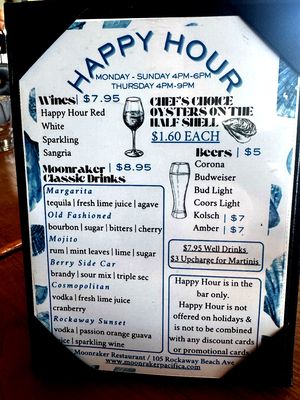 HAPPY HOUR
MONDAY - SUNDAY 4PM-6PM
THURSDAY 4PM-9PM
Wines | $7.95
Happy Hour Red
White
Sparkling
Sangria
CHEF'S CHOICE
OYSTERS ON THE
HALF SHELL
$1.60 EACH
Moonraker | $8.95
Classic Drinks
Margarita
tequila | fresh lime juice | agave
Old Fashioned
bourbon | sugar | bitters | cherry
Mojito
rum | mint leaves | lime | sugar
Berry Side Car
brandy | sour mix | triple sec
Cosmopolitan
vodka | fresh lime juice
cranberry
Rockaway Sunset
vodka | passion orange guava
juice | sparkling wine
Beers | $5
Corona
Budweiser
Bud Light
Coors Light
Kolsch | $7
Amber | $7
$7.95 Well Drinks
$3 Upcharge for Martinis
Happy Hour is in the
bar only.
Happy Hour is not
offered on holidays &
is not to be combined
with any discount cards
or promotional cards
Moonraker Restaurant / 105 Rockaway Beach Ave
www.moonrakerpacifica.com